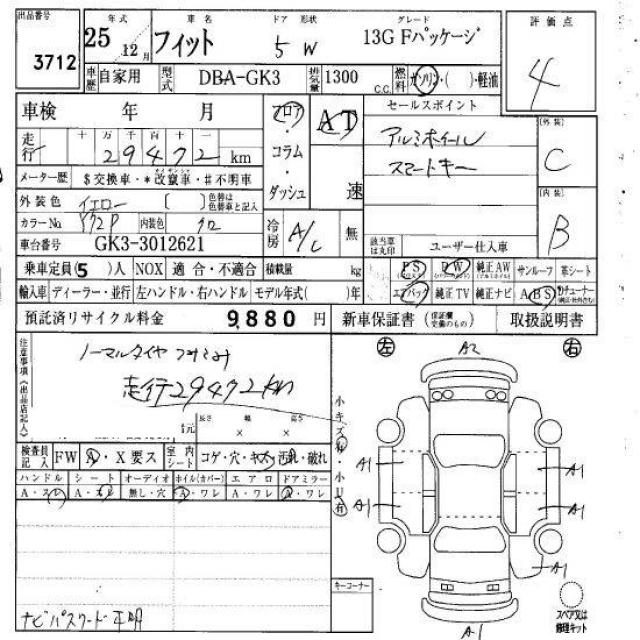 出品番号 年式 車名 ドア 形状 グレード 評価点
3712 25 12月 フィット 5 W 13G Fパッケージ 4
車歴 自家用 型式 DBA-GK3 排気量 1300 c.c. 燃料 ガソリン・( )・軽油
車検 年 月 フロア AT セールスポイント
走行 十 万 千 百 十 一 コラム アルミホイール [外装]
29472 km ダッシュ 速 スマートキー C
メーター歴 $交換車・*改竄車・#不明車
外装色 イエロー [ ] 色替は色替車と記入 [内装]
カラーNo Y72P 内装色 クロ 冷房 A/C 無 B
車台番号 GK3-3012621 該当車は丸印 ユーザー仕入車
乗車定員(5)人 NOX 適合・不適合 積載量 kg PS PW 純正AW サンルーフ 革シート
輸入車 ディーラー・並行 左ハンドル・右ハンドル モデル年式( )年 エアバック 純正TV 純正ナビ ABS
預託済リサイクル料金 9,880 円 新車保証書 (保証欄交換のもの) 取扱説明書
注意事項《出品店記入》 ノーマルタイヤ 左 A2 右
走行29472km
長さ 幅 高さ 小キズ有・小U有
検査員記入 FW A・X要ス 室内シート コゲ・穴・キズ・汚れ・破れ
ハンドル シート オーディオ ホイル(カバー) エアロ ドアミラー A1 A1
A・スレ A・スレ 無し・穴 A・ワレ A・ワレ A・ワレ A1 A1
A1
キーコーナー
ナビパスワード不明 A-1 スペア又は修理キット